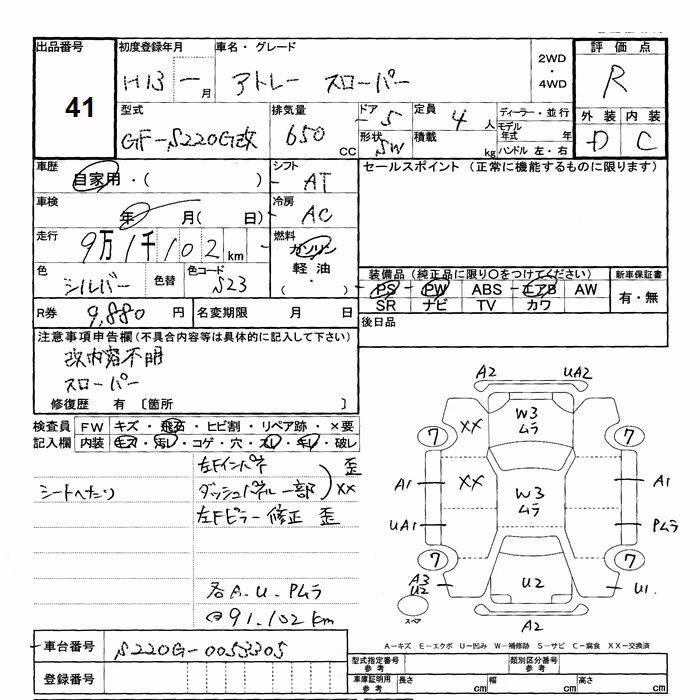 出品番号
41
初度登録年月
H13 年 一 月
車名・グレード
アトレー スローパー
2WD・4WD
評価点
R
型式
GF-S220G改
排気量
650 CC
ドア
5
形状
SW
定員
4 人
積載
kg
ディーラー・並行
モデル年式 年
ハンドル 左・右
外装 内装
D C
車歴
自家用・( )
シフト
AT
セールスポイント (正常に機能するものに限ります)
車検
年 月( 日)
冷房
AC
走行
9万1千102km
燃料
ガソリン
軽油
・( )
色
シルバー
色替
色コード
S23
装備品 (純正品に限り〇をつけてください)
新車保証書
PS PW ABS エアB AW
SR ナビ TV カワ
有・無
R券 9,880 円
名変期限 月 日
後日品
注意事項申告欄(不具合内容等は具体的に記入して下さい)
改内容不明
スローパー
修復歴 有 〔箇所 〕
検査員記入欄
FW キズ・飛石・ヒビ割・リペア跡・×要
内装 キズ・汚レ・コゲ・穴・スレ・キレ・破レ
シートへたり
左Fインパネ
ダッシュパネル一部
歪
XX
左Fピラー修正 歪
各A.U.Pムラ
@91.102km
A2 UA2
W3
ムラ
XX
7 7
A1 XX W3
ムラ A1
UA1 Pムラ
7 7
A3
U2
U2 U1
スペア
A2
A-キズ E-エクボ U-凹み W-補修跡 S-サビ C-腐食 XX-交換済
車台番号 S220G-0053305
登録番号
型式指定番号
参考
類別区分番号
参考
車庫証明用
参考
長さ cm 幅 cm 高さ cm